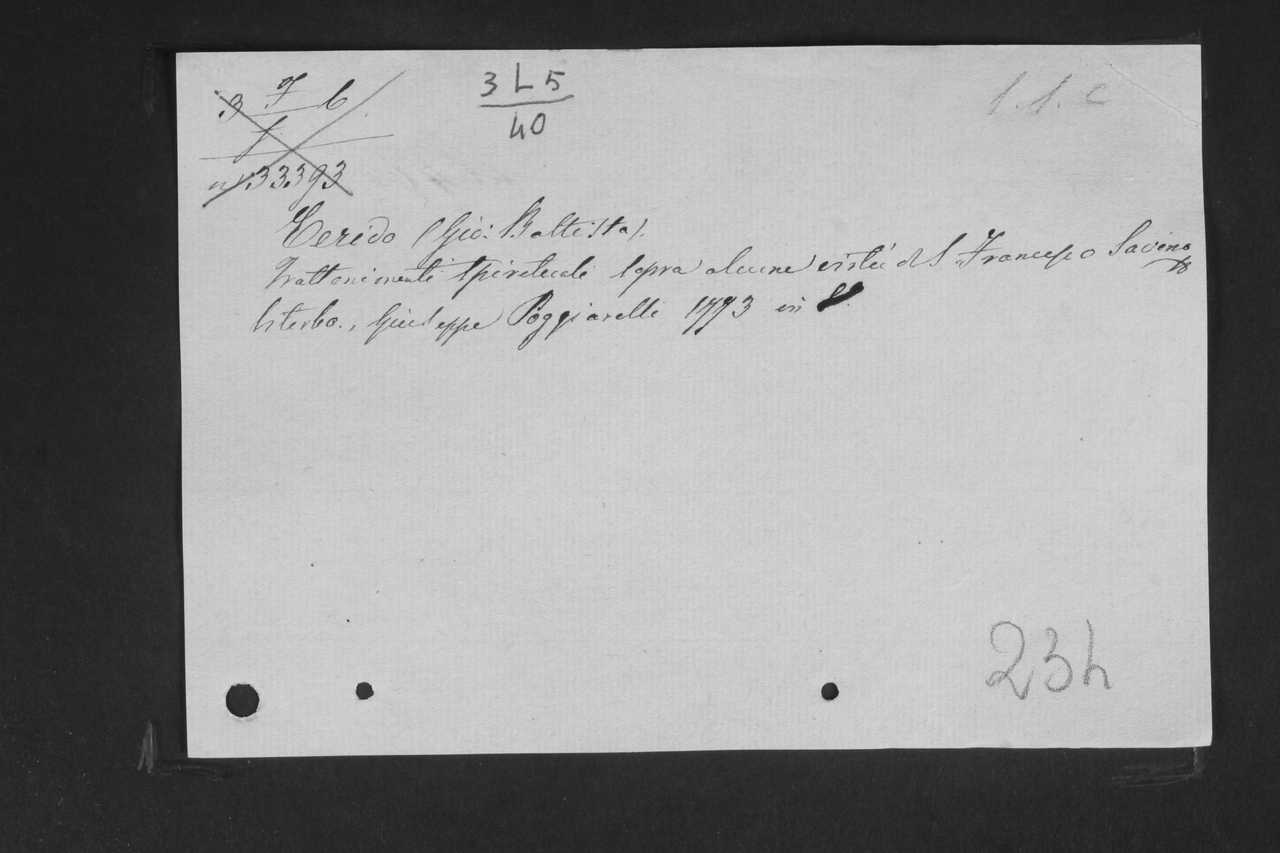 3 7 6
1
n. 33393
3 L 5
40
1. 1. C
Cerido (Gio: Battista).
Trattenimenti Spirituali sopra alcune virtù di S. Francesco Saverio
Viterbo., Giuseppe Poggiarelli 1773 in 8.
23h